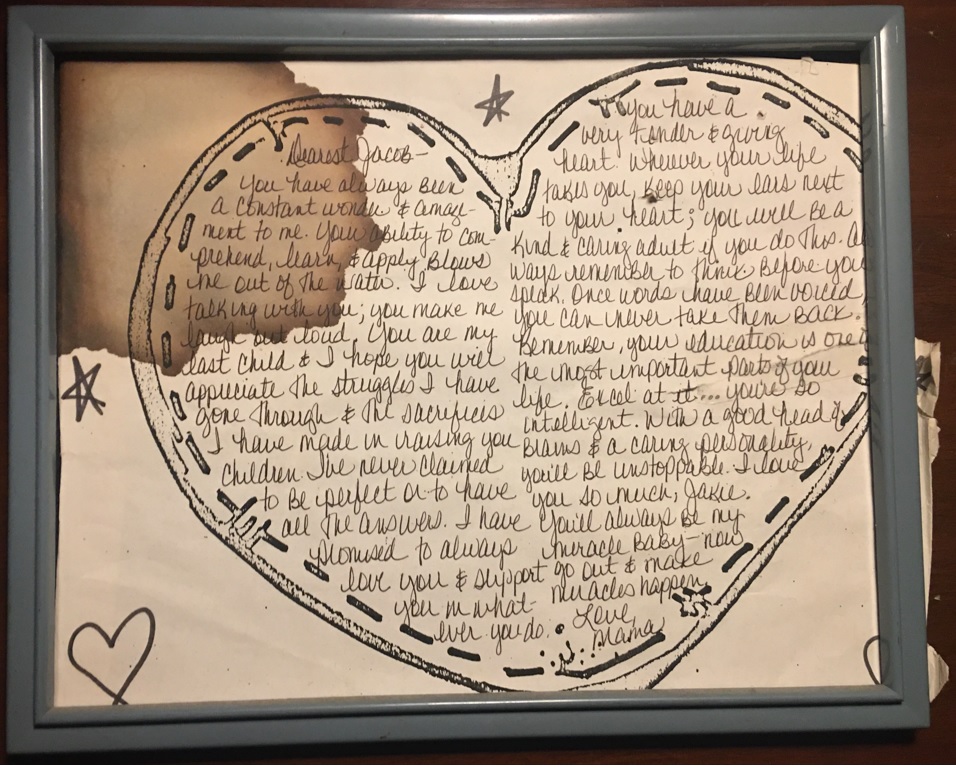 Dearest Jacob-
You have always been
a constant wonder & amaze-
ment to me. Your ability to com-
prehend, learn, & apply blows
me out of the water. I love
talking with you; you make me
laugh out loud. You are my
last child & I hope you will
appreciate the struggles I have
gone through & the sacrifices
I have made in raising you
children. I've never claimed
to be perfect or to have
all the answers. I have
promised to always
love you & support
you in what-
ever you do.
You have a
very tender & giving
heart. Wherever your life
takes you, keep your ears next
to your heart; you will be a
kind & caring adult if you do this. Al
ways remember to think before you
speak. Once words have been voiced,
you can never take them back.
Remember, your education is one of
the most important parts of your
life. Excel at it... you're so
intelligent. With a good head of
brains & a caring personality,
you'll be unstoppable. I love
you so much, Jakie.
You'll always be my
miracle baby- now
go out & make
miracles happen.
Love,
Mama